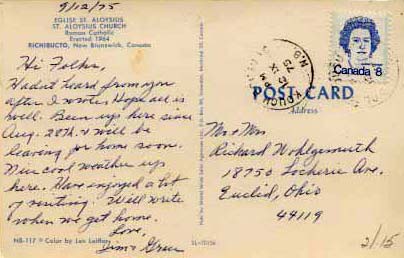 9/12/75
EGLISE ST. ALOYSIUS
ST. ALOYSIUS CHURCH
Roman Catholic
Erected 1964
RICHIBUCTO, New Brunswick, Canada
Hi Folks,
Hadn't heard from you
after I wrote. Hope all is
well. Been up here since
Aug. 20th & will be
leaving for home soon.
Nice cool weather up
here. Have enjoyed a lot
of visiting. Will write
when we get home.
Love,
Jim & Grace
NB-117 Color by Len
SL-70156
Canada 8
PM
IX
75
N.B.
POST CARD
Address
Mr & Mrs
Richard Wohlgemuth
18750 Locherie Ave.
Euclid, Ohio
44119
2/15